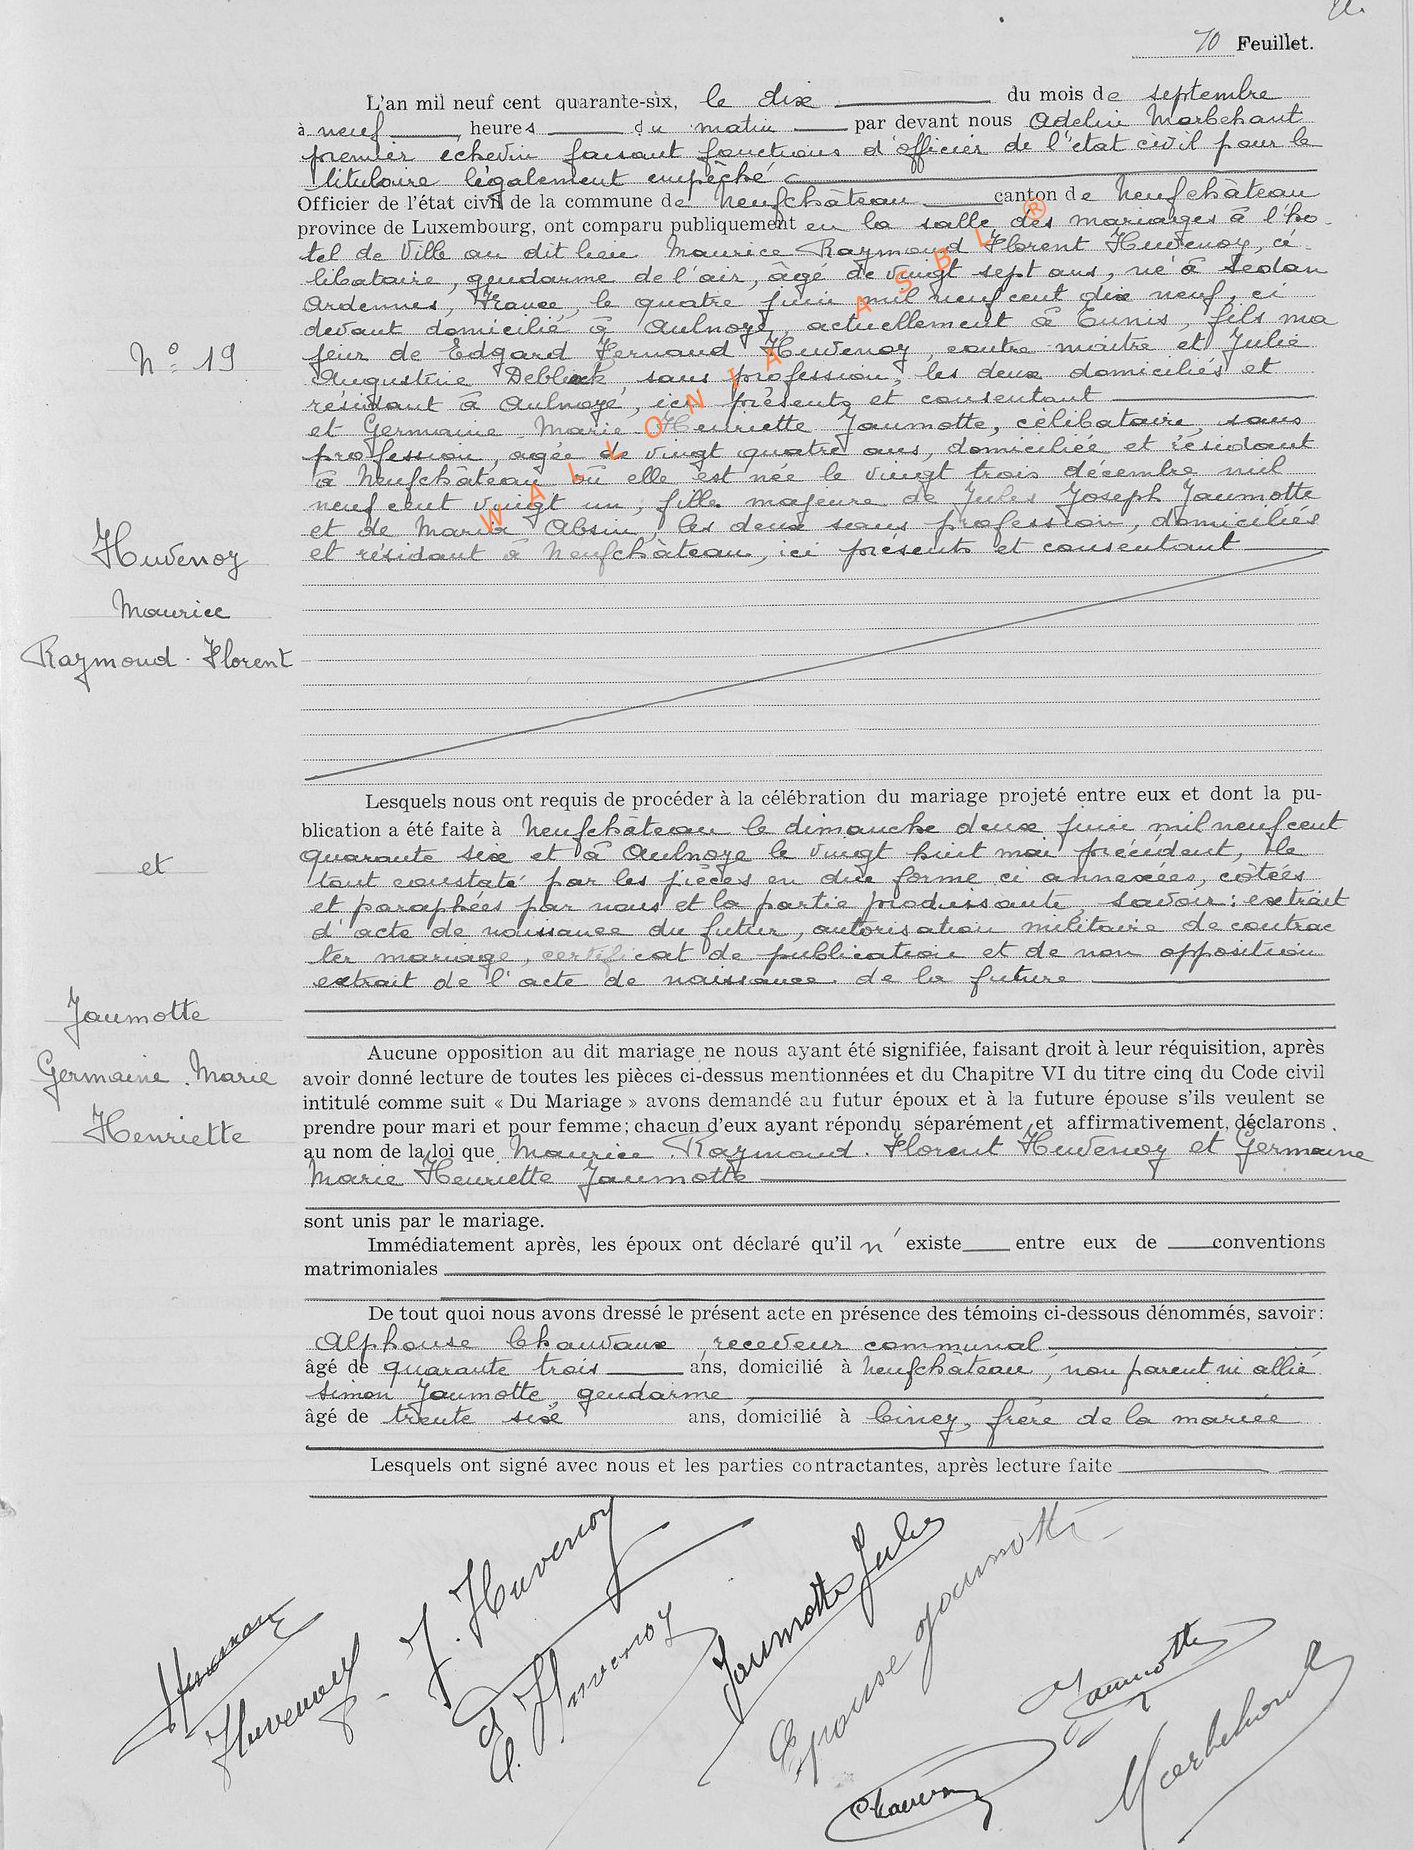 10 Feuillet.
L'an mil neuf cent quarante-six, le dix du mois de septembre
à neuf heures du matin par devant nous Adelin Marbehant
premier échevin faisant fonctions d'officier de l'état civil pour le
titulaire légalement empêché
Officier de l'état civil de la commune de Neufchâteau canton de Neufchâteau
province de Luxembourg, ont comparu publiquement en la salle des mariages à l'ho-
tel de Ville au dit lieu Maurice Raymond Florent Huvenoy, cé-
libataire, gendarme de l'air, âgé de vingt sept ans, né à Sedan
Ardennes, France, le quatre juin mil neuf cent dix neuf, ci
devant domicilié à Aulnoye, actuellement à Tunis, fils ma
jeur de Edgard Fernand Huvenoy, contre maître et Julie
Augustine Deblock, sans profession, les deux domiciliés et
résidant à Aulnoye, ici présents et consentant
et Germaine Marie Henriette Jaumotte, célibataire, sans
profession, agée de vingt quatre ans, domiciliée et résidant
à Neufchâteau où elle est née le vingt trois décembre mil
neuf cent vingt un, fille majeure de Jules Joseph Jaumotte
et de Maria Absin, les deux sans profession, domiciliés
et résidant à Neufchâteau, ici présents et consentant
N° 19
Huvenoy
Maurice
Raymond. Florent
et
Jaumotte
Germaine. Marie
Henriette
WALLONIA ASBL ®
Lesquels nous ont requis de procéder à la célébration du mariage projeté entre eux et dont la pu-
blication a été faite à Neufchâteau le dimanche deux juin mil neuf cent
quarante six et à Aulnoye le vingt huit mai précédent, le
tout constaté par les pièces en due forme ci annexées, cotées
et paraphées par nous et la partie produisante, savoir: extrait
d'acte de naissance du futur, autorisation militaire de contrac
ter mariage, certificat de publication et de non opposition
extrait de l'acte de naissance de la future
Aucune opposition au dit mariage ne nous ayant été signifiée, faisant droit à leur réquisition, après
avoir donné lecture de toutes les pièces ci-dessus mentionnées et du Chapitre VI du titre cinq du Code civil
intitulé comme suit « Du Mariage » avons demandé au futur époux et à la future épouse s'ils veulent se
prendre pour mari et pour femme; chacun d'eux ayant répondu séparément et affirmativement, déclarons
au nom de la loi que Maurice. Raymond. Florent Huvenoy et Germaine
Marie Henriette Jaumotte
sont unis par le mariage.
Immédiatement après, les époux ont déclaré qu'il n'existe entre eux de conventions
matrimoniales
De tout quoi nous avons dressé le présent acte en présence des témoins ci-dessous dénommés, savoir:
Alphonse Chauvaux, receveur communal
âgé de quarante trois ans, domicilié à Neufchâteau, non parent ni allié
Simon Jaumotte, gendarme
âgé de trente six ans, domicilié à Ciney, frère de la mariée
Lesquels ont signé avec nous et les parties contractantes, après lecture faite
Huvenoy
J. Huvenoy
E. Huvenoy
Jaumotte Jules
Epouse Jaumotte
Jaumotte
Chauvaux
Marbehant